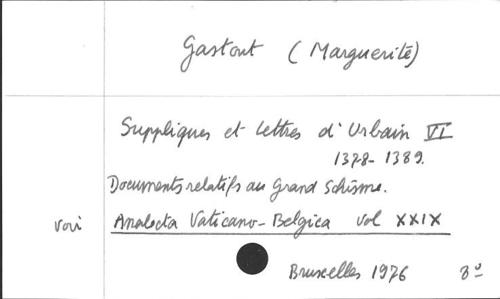 Gastout (Marguerite)
Suppliques et lettres d'Urbain VI
1378-1389.
Documents relatifs au Grand Schisme.
voir Analecta Vaticano-Belgica vol XXIX
Bruxelles 1976 8º